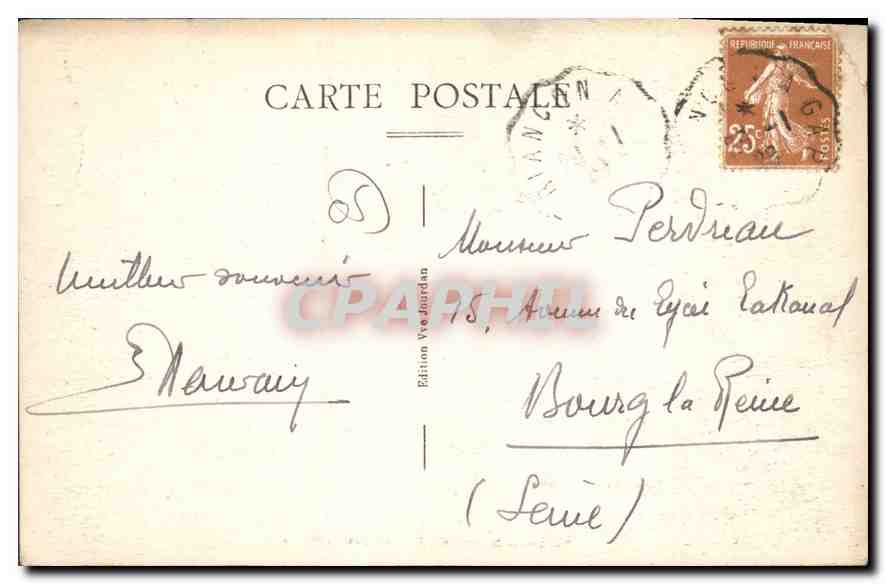 CARTE POSTALE
REPUBLIQUE FRANÇAISE
25c
POSTES
BRIANCON
Meilleur souvenir
Monsieur Perdrieau
15, Avenue du Lycée Lakanal
Bourg la Reine
(Seine)
Edition Vve Jourdan
CPAPHIL